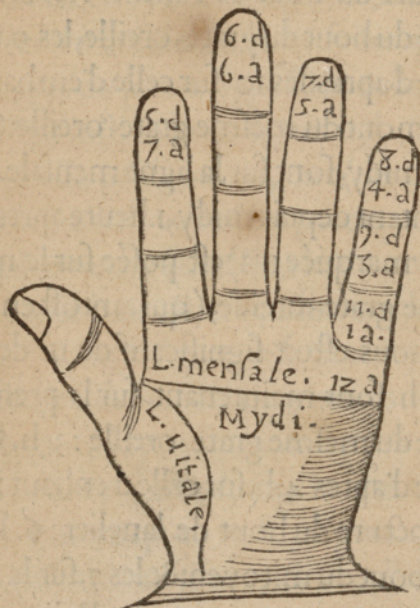 5.d
7.a
6.d
6.a
7.d
5.a
8.d
4.a
9.d
3.a
11.d
1a.
L.menſale. 12 a
Mydi.
L. uitale.